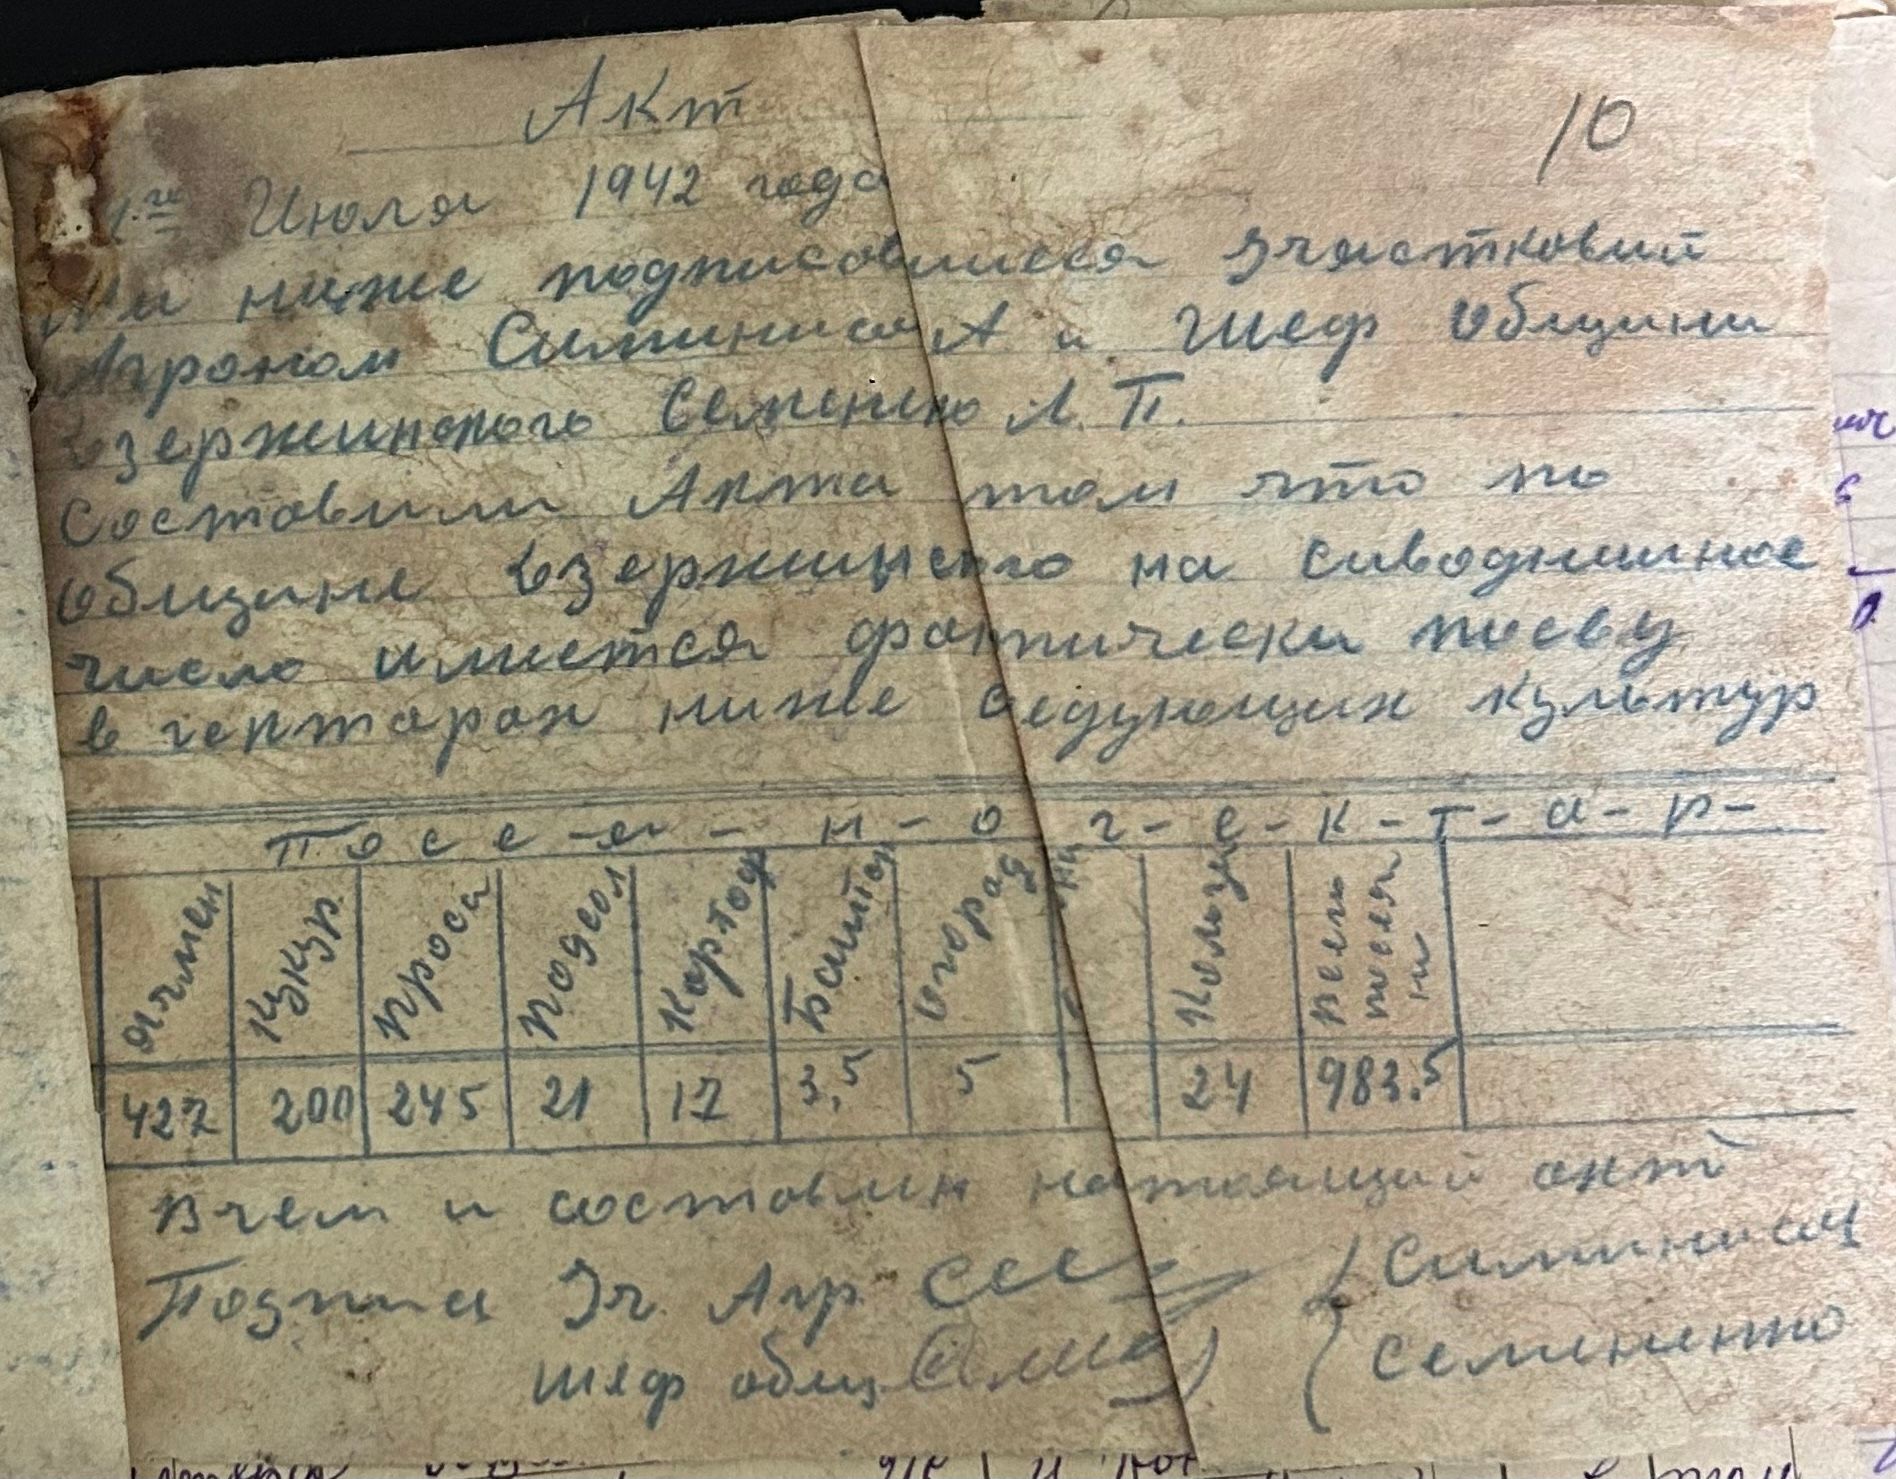 Акт
10
1.го Июля 1942 года
Ми ниже подписовшиеся Участковий
Агроном Симиниса А и Шеф Общини
Дзержинского Семенено Л. П.
Составили Акта том что по
Общине Дзержинского на сиводнишное
число имиется фоктически посеву
в гектарах ниже следующих культур
Посеено гектар
ячмен Кукур. проса подсол Картоф Баштан Огород Кольце всего посеяни
427 200 245 21 17 3,5 5 24 983.5
вчем и состовлин натоящий акт
Подписи Уч. Агр. Симинисм
шеф общ. Семененко